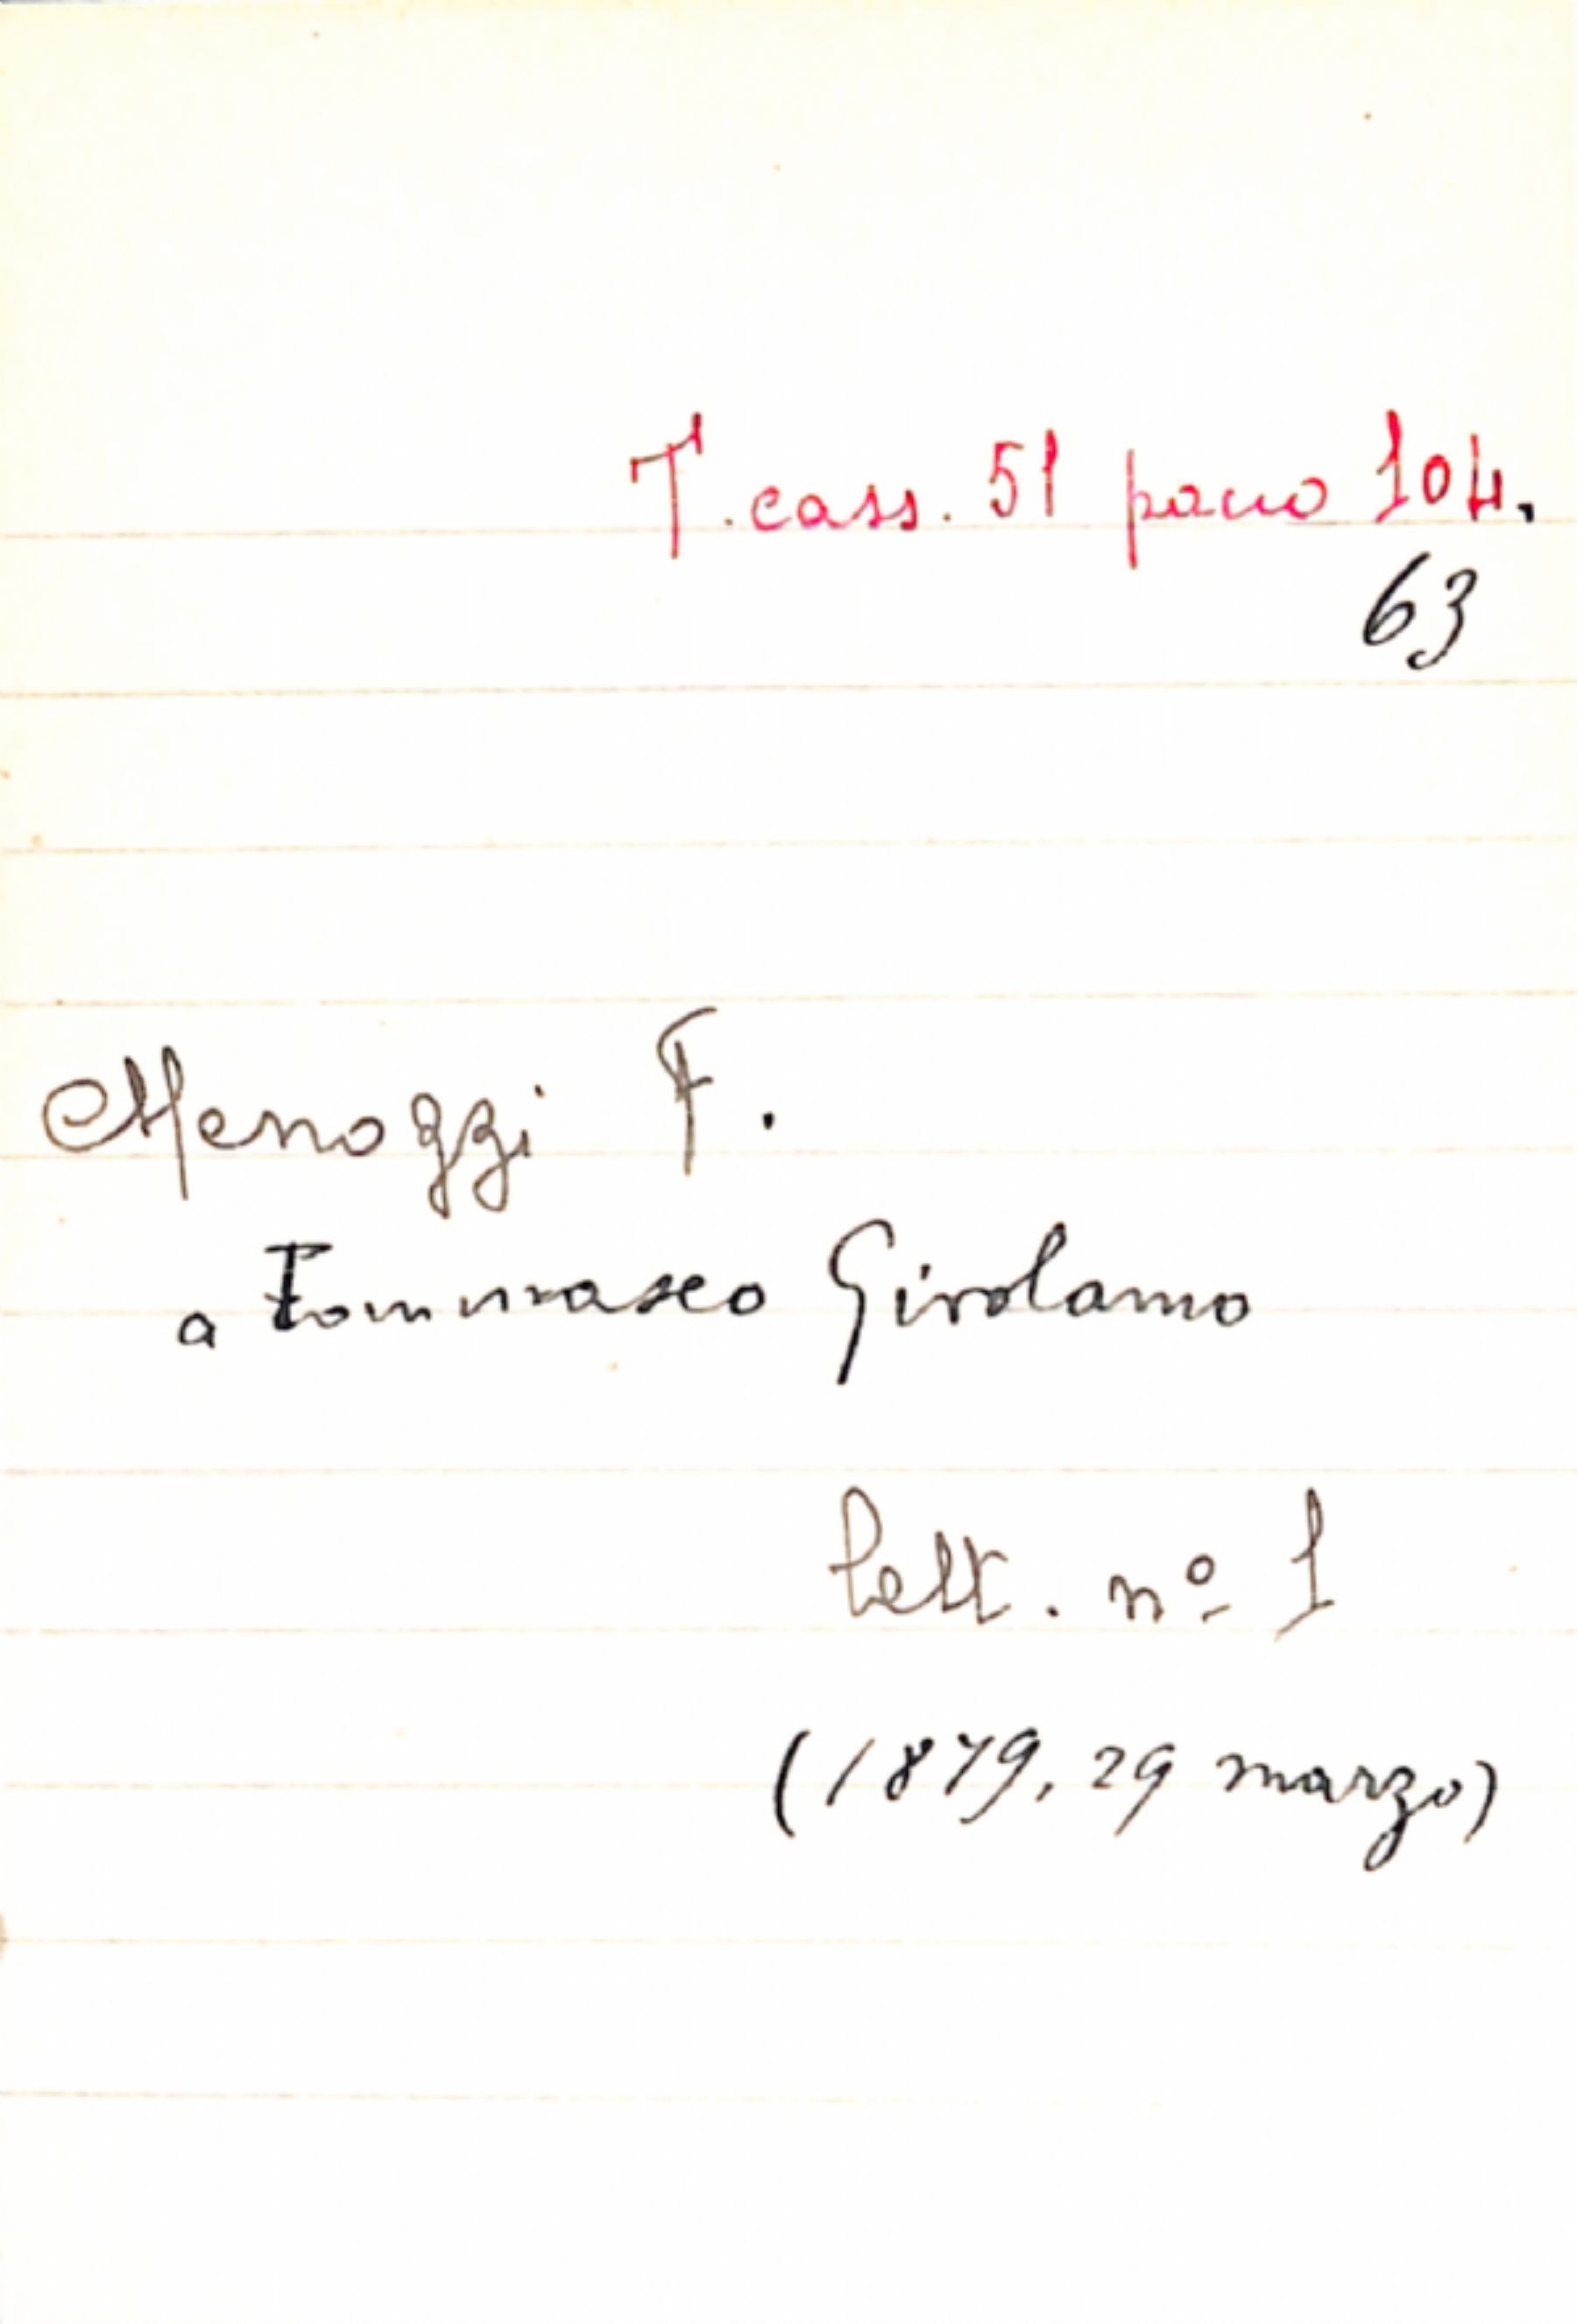 T. cass. 51 pacco 104.
63
Menozzi F.
a Tommaseo Girolamo
Lett. nº 1
(1879, 29 marzo)